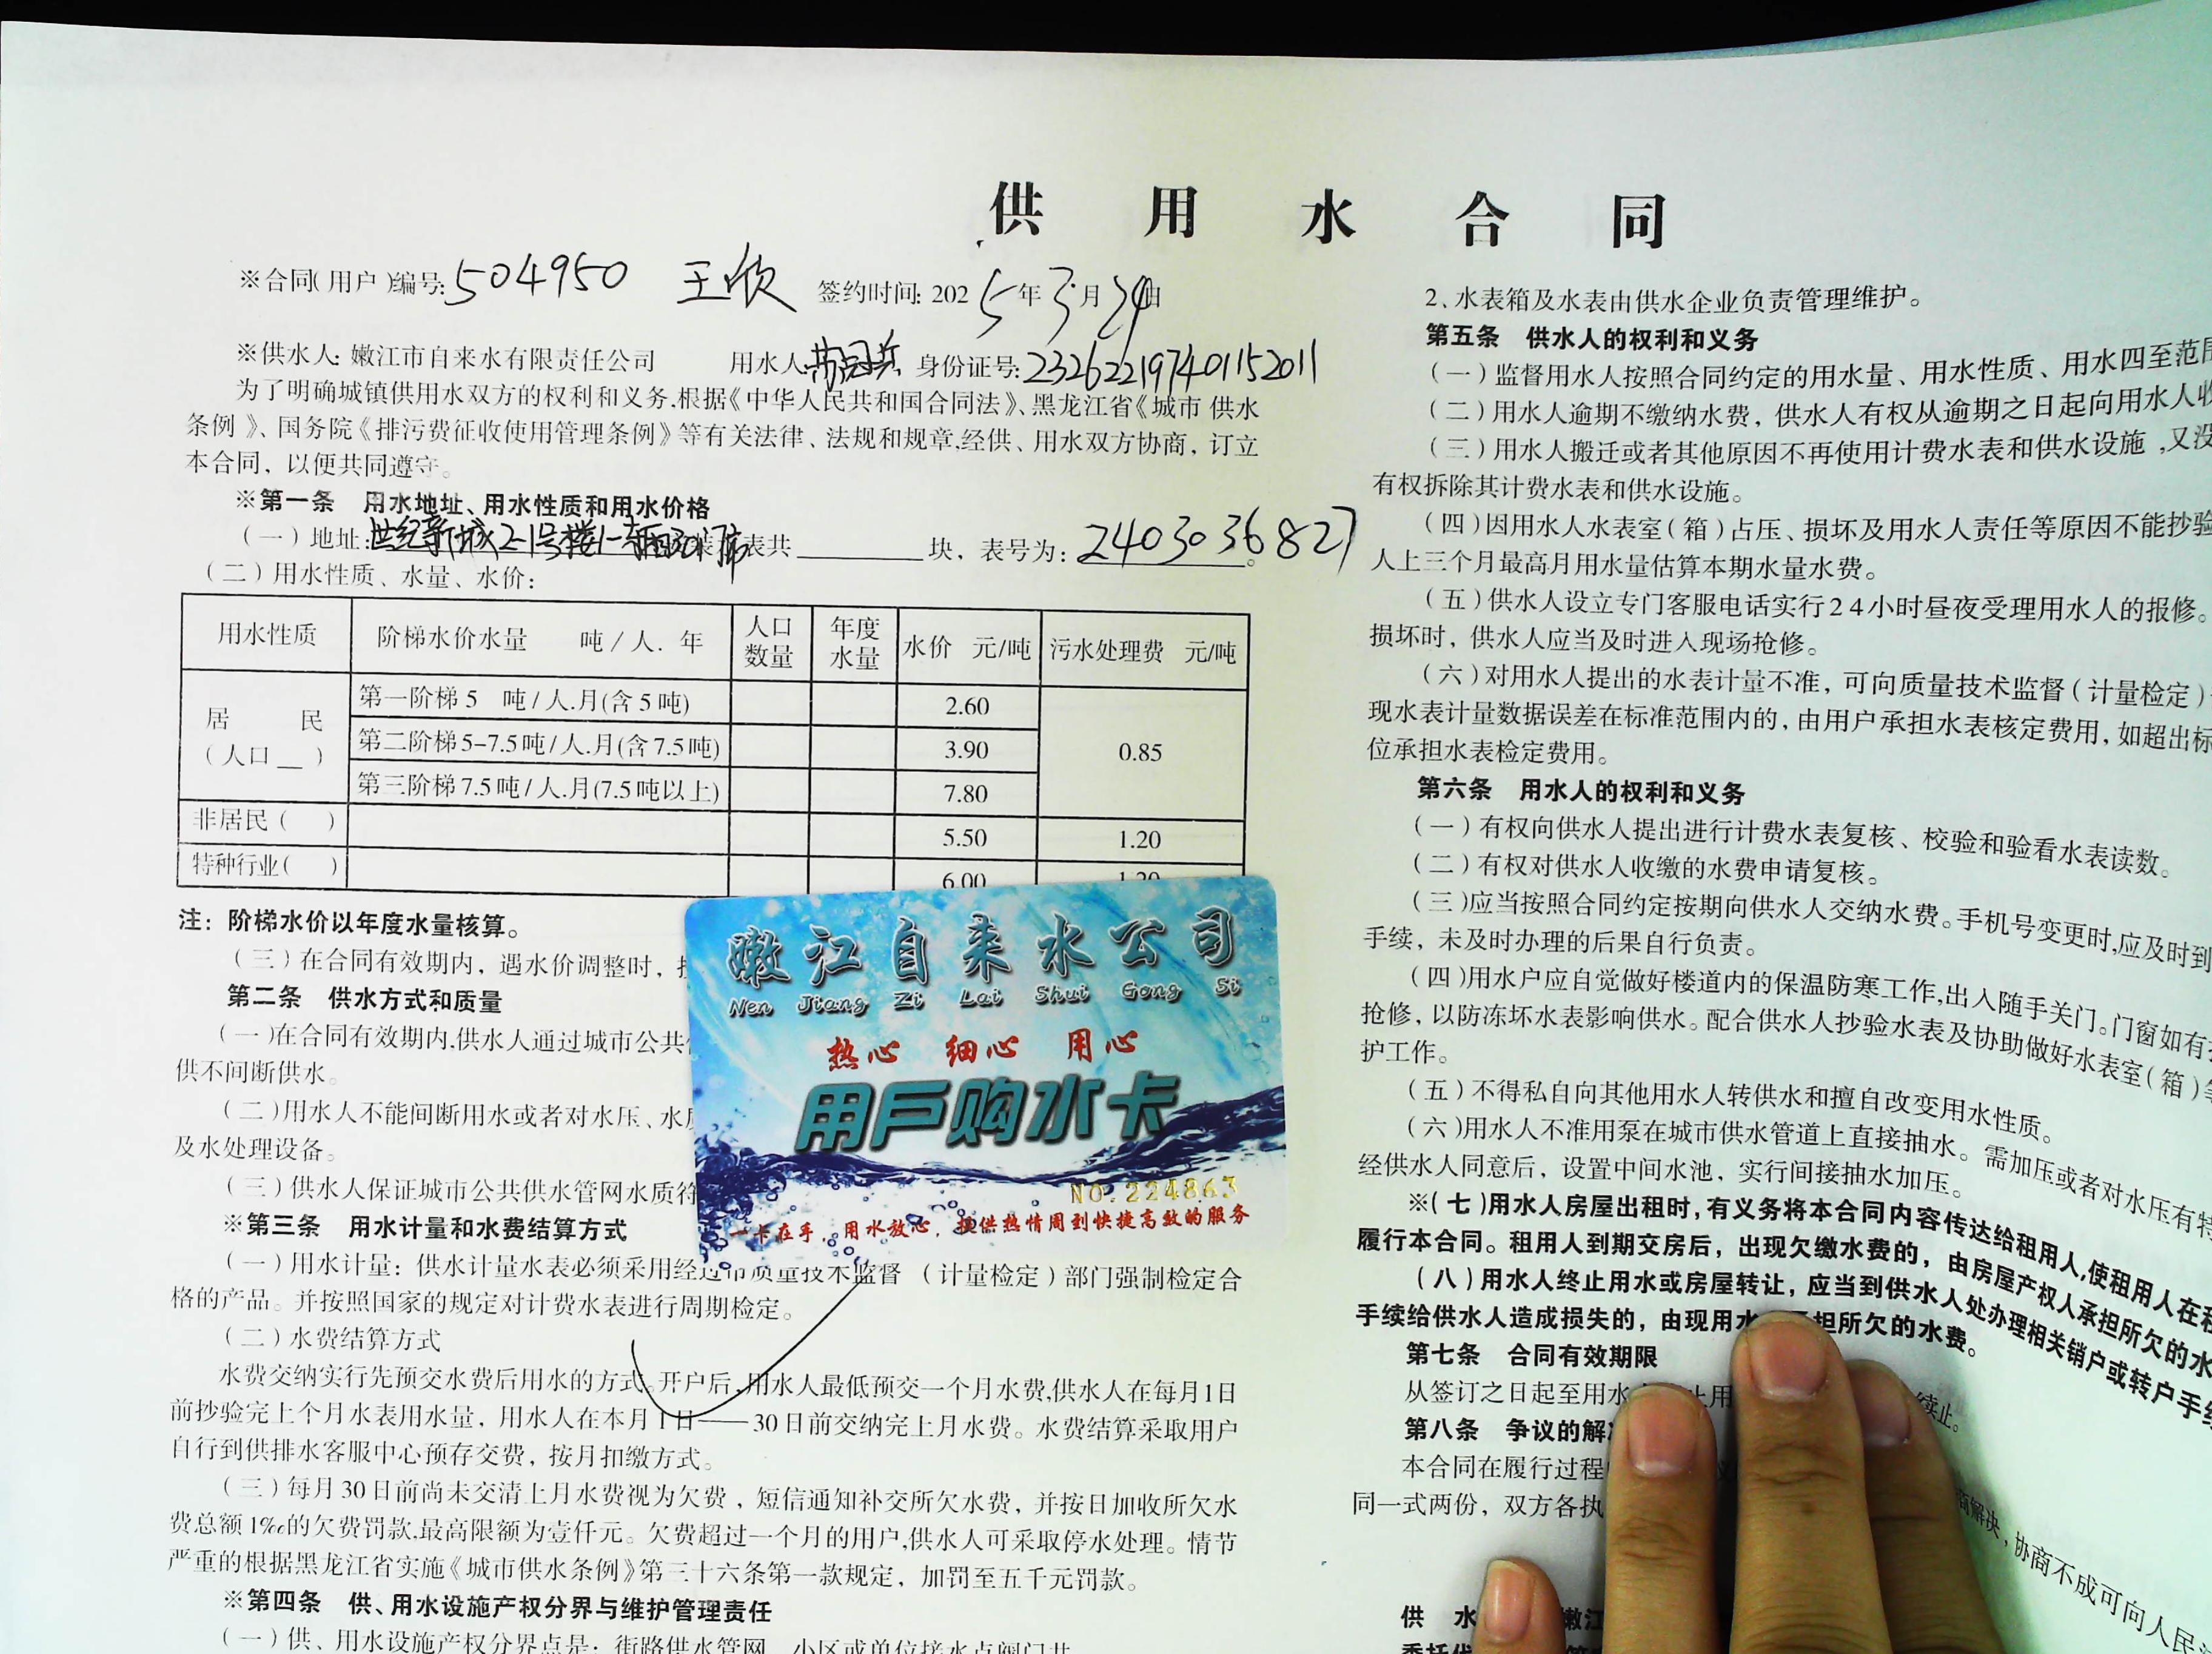 供 用 水 合 同
※合同(用户)编号: 504950 王欣 签约时间: 2025年3月24日
※供水人: 嫩江市自来水有限责任公司 用水人: 身份证号: 232622197401152011
为了明确城镇供用水双方的权利和义务.根据《中华人民共和国合同法》、黑龙江省《城市 供水
条例》、国务院《排污费征收使用管理条例》等有关法律、法规和规章.经供、用水双方协商，订立
本合同，以便共同遵守。
※第一条 用水地址、用水性质和用水价格
(一)地址: 世纪新城2-1号楼1- 301 表共 块，表号为: 2403036827。
(二)用水性质、水量、水价:
用水性质 阶梯水价水量 吨/人. 年 人口数量 年度水量 水价 元/吨 污水处理费 元/吨
居 民 (人口__)
第一阶梯5 吨/人.月(含5吨) 2.60 0.85
第二阶梯5-7.5吨/人.月(含7.5吨) 3.90
第三阶梯7.5吨/人.月(7.5吨以上) 7.80
非居民( ) 5.50 1.20
特种行业( ) 6.00 1.20
注: 阶梯水价以年度水量核算。
(三)在合同有效期内，遇水价调整时，
第二条 供水方式和质量
(一)在合同有效期内.供水人通过城市公共
供不间断供水。
(二)用水人不能间断用水或者对水压、水
及水处理设备。
(三)供水人保证城市公共供水管网水质符
※第三条 用水计量和水费结算方式
(一)用水计量: 供水计量水表必须采用经过市质量技术监督 (计量检定)部门强制检定合
格的产品。并按照国家的规定对计费水表进行周期检定。
(二)水费结算方式
水费交纳实行先预交水费后用水的方式。开户后,用水人最低预交一个月水费,供水人在每月1日
前抄验完上个月水表用水量，用水人在本月1日——30日前交纳完上月水费。水费结算采取用户
自行到供排水客服中心预存交费，按月扣缴方式。
(三)每月30日前尚未交清上月水费视为欠费，短信通知补交所欠水费，并按日加收所欠水
费总额1‰的欠费罚款.最高限额为壹仟元。欠费超过一个月的用户,供水人可采取停水处理。情节
严重的根据黑龙江省实施《城市供水条例》第三十六条第一款规定，加罚至五千元罚款。
※第四条 供、用水设施产权分界与维护管理责任
(一)供、用水设施产权分界点是: 街路供水管网、小区或单位接水点阀门井
嫩江自来水公司
Nen Jiang Zi Lai Shui Gong Si
热心 细心 用心
用户购水卡
NO.224863
一卡在手，用水放心，提供热情周到快捷高效的服务
2、水表箱及水表由供水企业负责管理维护。
第五条 供水人的权利和义务
(一)监督用水人按照合同约定的用水量、用水性质、用水四至范围
(二)用水人逾期不缴纳水费，供水人有权从逾期之日起向用水人收
(三)用水人搬迁或者其他原因不再使用计费水表和供水设施,又没
有权拆除其计费水表和供水设施。
(四)因用水人水表室(箱)占压、损坏及用水人责任等原因不能抄验
人上三个月最高月用水量估算本期水量水费。
(五)供水人设立专门客服电话实行24小时昼夜受理用水人的报修。
损坏时，供水人应当及时进入现场抢修。
(六)对用水人提出的水表计量不准，可向质量技术监督(计量检定)
现水表计量数据误差在标准范围内的，由用户承担水表核定费用，如超出标
位承担水表检定费用。
第六条 用水人的权利和义务
(一)有权向供水人提出进行计费水表复核、校验和验看水表读数。
(二)有权对供水人收缴的水费申请复核。
(三)应当按照合同约定按期向供水人交纳水费。手机号变更时,应及时到
手续，未及时办理的后果自行负责。
(四)用水户应自觉做好楼道内的保温防寒工作,出入随手关门。门窗如有
抢修，以防冻坏水表影响供水。配合供水人抄验水表及协助做好水表室(箱)
护工作。
(五)不得私自向其他用水人转供水和擅自改变用水性质。
(六)用水人不准用泵在城市供水管道上直接抽水。需加压或者对水压有特
经供水人同意后，设置中间水池，实行间接抽水加压。
※(七)用水人房屋出租时,有义务将本合同内容传达给租用人,使租用人在租
履行本合同。租用人到期交房后，出现欠缴水费的，由房屋产权人承担所欠的水
(八)用水人终止用水或房屋转让，应当到供水人处办理相关销户或转户手续
手续给供水人造成损失的，由现用水 担所欠的水费。
第七条 合同有效期限
从签订之日起至用水 止用 续止。
第八条 争议的解
本合同在履行过程 商解决，协商不成可向人民
同一式两份，双方各执
供 水 嫩江
委托代